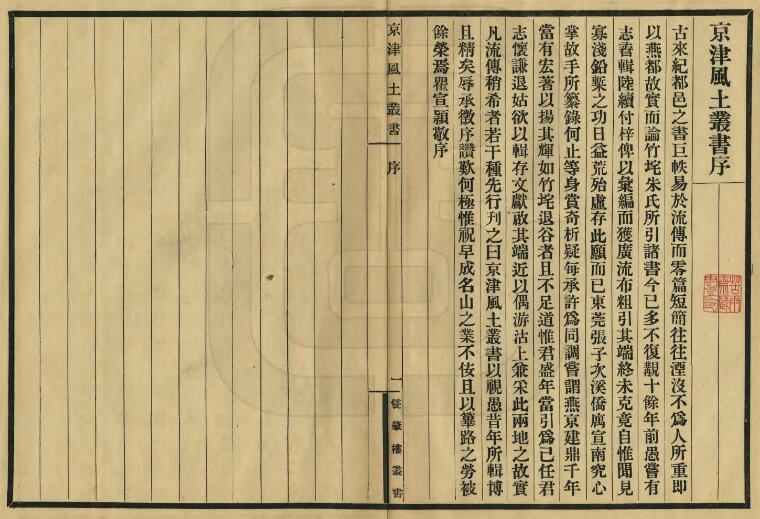 京津風土叢書序
古來紀都邑之書巨帙易於流傳而零篇短簡往往湮沒不爲人所重即
以燕都故實而論竹垞朱氏所引諸書今已多不復覩十餘年前愚嘗有
志蒼輯陸續付梓俾以彙編而獲廣流布粗引其端終未克竟自惟聞見
寡淺鉛槧之功日益荒殆虛存此願而已東莞張子次溪僑寓宣南究心
掌故手所纂錄何止等身賞奇析疑每承許爲同調嘗謂燕京建鼎千年
當有宏著以揚其輝如竹垞退谷者且不足道惟君盛年當引爲己任君
志懷謙退姑欲以輯存文獻啟其端近以偶游沽上兼采此兩地之故實
凡流傳稍希者若干種先行刊之曰京津風土叢書以視愚昔年所輯博
且精矣辱承徵序讚歎何極惟祝早成名山之業不佞且以篳路之勞被
餘榮焉瞿宣穎敬序
京津風土叢書
序
一
雙肇樓叢書